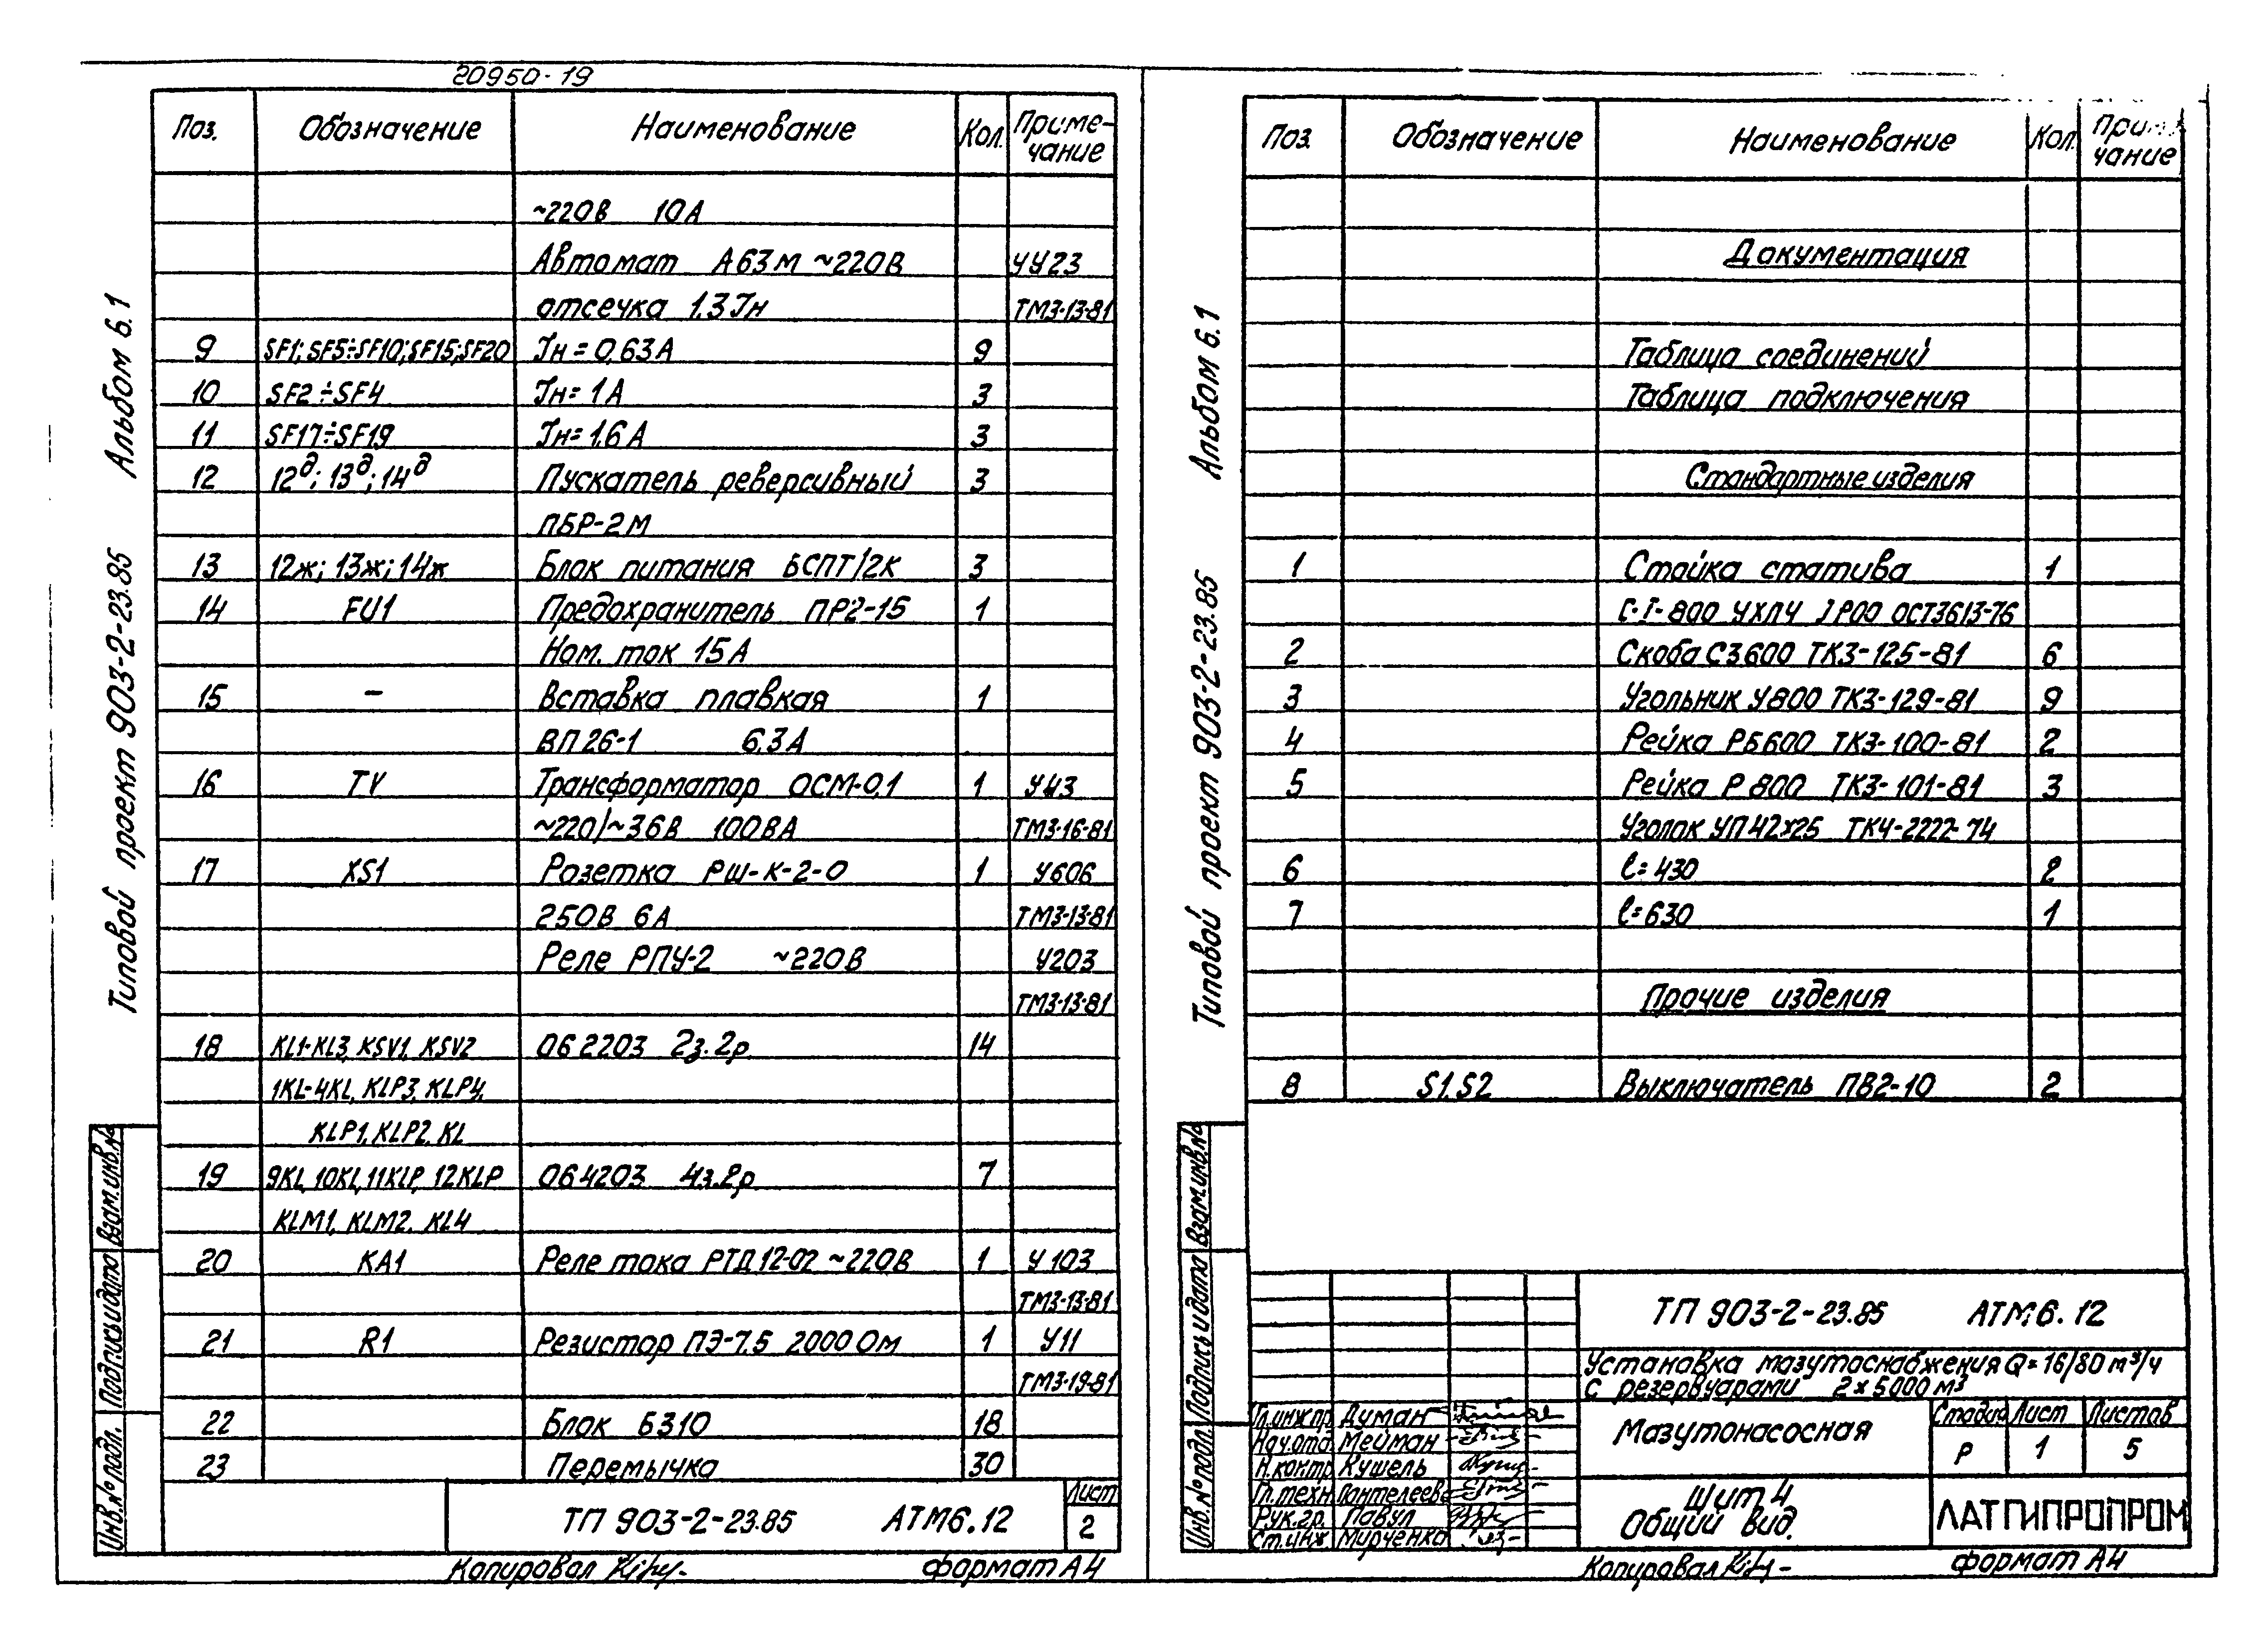 20950-19
Поз. Обозначение Наименование Кол. Приме-
чание
~220В 10А
Автомат А63М ~220В УУ23
отсечка 1.3Iн ТМ3-13-81
9 SF1; SF5÷SF10; SF15; SF20 Iн = 0,63А 9
10 SF2÷SF4 Iн = 1А 3
11 SF17÷SF19 Iн = 1,6А 3
12 12д; 13д; 14д Пускатель реверсивный 3
ПБР-2М
13 12ж; 13ж; 14ж Блок питания БСПТ/2К 3
14 FU1 Предохранитель ПР2-15 1
Ном. ток 15А
15 - Вставка плавкая 1
ВП26-1 6,3А
16 TV Трансформатор ОСМ-0,1 1 У43
~220/~36В 100ВА ТМ3-16-81
17 XS1 Розетка РШ-К-2-0 1 У606
250В 6А ТМ3-13-81
Реле РПУ-2 ~220В У203
ТМ3-13-81
18 KL1-KL3, KSV1, KSV2 062203 2з.2р. 14
1KL-4KL, KLP3, KLP4,
KLP1, KLP2, KL
19 9KL, 10KL, 11KLP, 12KLP 064203 4з.2р 7
KLM1, KLM2, KL4
20 KA1 Реле тока РТД12-02 ~220В 1 У103
ТМ3-13-81
21 R1 Резистор ПЭ-7,5 2000 Ом 1 У11
ТМ3-19-81
22 Блок Б310 18
23 Перемычка 30
ТП 903-2-23.85 АТМ6.12 Лист
2
Копировал формат А4
Типовой проект 903-2-23.85 Альбом 6.1
Инв.№ подл. Подпись и дата Взам.инв.№
Поз. Обозначение Наименование Кол. Приме
чание
Документация
Таблица соединений
Таблица подключения
Стандартные изделия
1 Стойка статива 1
С-I-800 УХЛ4 IP00 ОСТ3613-76
2 Скоба С3600 ТК3-125-81 6
3 Угольник У800 ТК3-129-81 9
4 Рейка РБ600 ТК3-100-81 2
5 Рейка Р800 ТК3-101-81 3
Уголок УП42х25 ТК4-2222-74
6 l=430 2
7 l=630 1
Прочие изделия
8 S1, S2 Выключатель ПВ2-10 2
ТП 903-2-23.85 АТМ6.12
Установка мазутоснабжения Q=16/80 м³/ч
с резервуарами 2х5000 м³
Гл.инж.пр. Думан
Нач.отд Мейман
Н.контр Кушель
Гл.техн. Пантелеева
Рук.гр. Павул
Ст.инж Мирченко
Мазутонасосная
Стадия Лист Листов
Р 1 5
Щит 4
Общий вид.
ЛАТГИПРОПРОМ
Копировал формат А4
Типовой проект 903-2-23.85 Альбом 6.1
Инв.№ подл. Подпись и дата Взам.инв.№